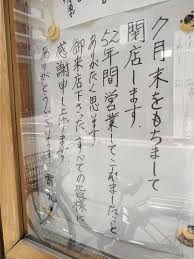 月末をもちまして
閉店します。
52年間営業してこれましたこと
ありがたく思います
御来店下さったすべての皆様に
感謝申し上げます
ありがとうございます